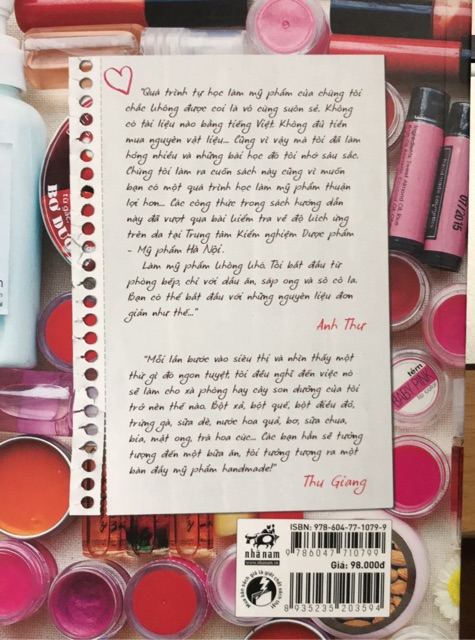 "Quá trình tự học làm mỹ phẩm của chúng tôi
chắc không được coi là vô cùng suôn sẻ. Không
có tài liệu nào bằng tiếng Việt. Không đủ tiền
mua nguyên vật liệu... Cũng vì vậy mà tôi đã làm
hỏng nhiều và những bài học đó tôi nhớ sâu sắc.
Chúng tôi làm ra cuốn sách này cũng vì muốn
bạn có một quá trình học làm mỹ phẩm thuận
lợi hơn... Các công thức trong sách hướng dẫn
này đã vượt qua bài kiểm tra về độ kích ứng
trên da tại Trung tâm Kiểm nghiệm Dược phẩm
- Mỹ phẩm Hà Nội.
Làm mỹ phẩm không khó. Tôi bắt đầu từ
phòng bếp, chỉ với dầu ăn, sáp ong và sô cô la.
Bạn có thể bắt đầu với những nguyên liệu đơn
giản như thế..."
Anh Thư
"Mỗi lần bước vào siêu thị và nhìn thấy một
thứ gì đó ngon tuyệt, tôi đều nghĩ đến việc nó
sẽ làm cho xà phòng hay cây son dưỡng của tôi
trở nên thế nào. Bột xả, bột quế, bột điều đỏ,
trứng gà, sữa dê, nước hoa quả, bơ, sữa chua,
bia, mật ong, trà hoa cúc... Các bạn hẳn sẽ tưởng
tượng đến một bữa ăn, tôi tưởng tượng ra một
bàn đầy mỹ phẩm handmade!"
Thu Giang
07/2015
BABY PINK
nhã nam
www.nhanam.vn
ISBN: 978-604-77-1079-9
9 786047 710799
Giá: 98.000đ
8 935235 203594